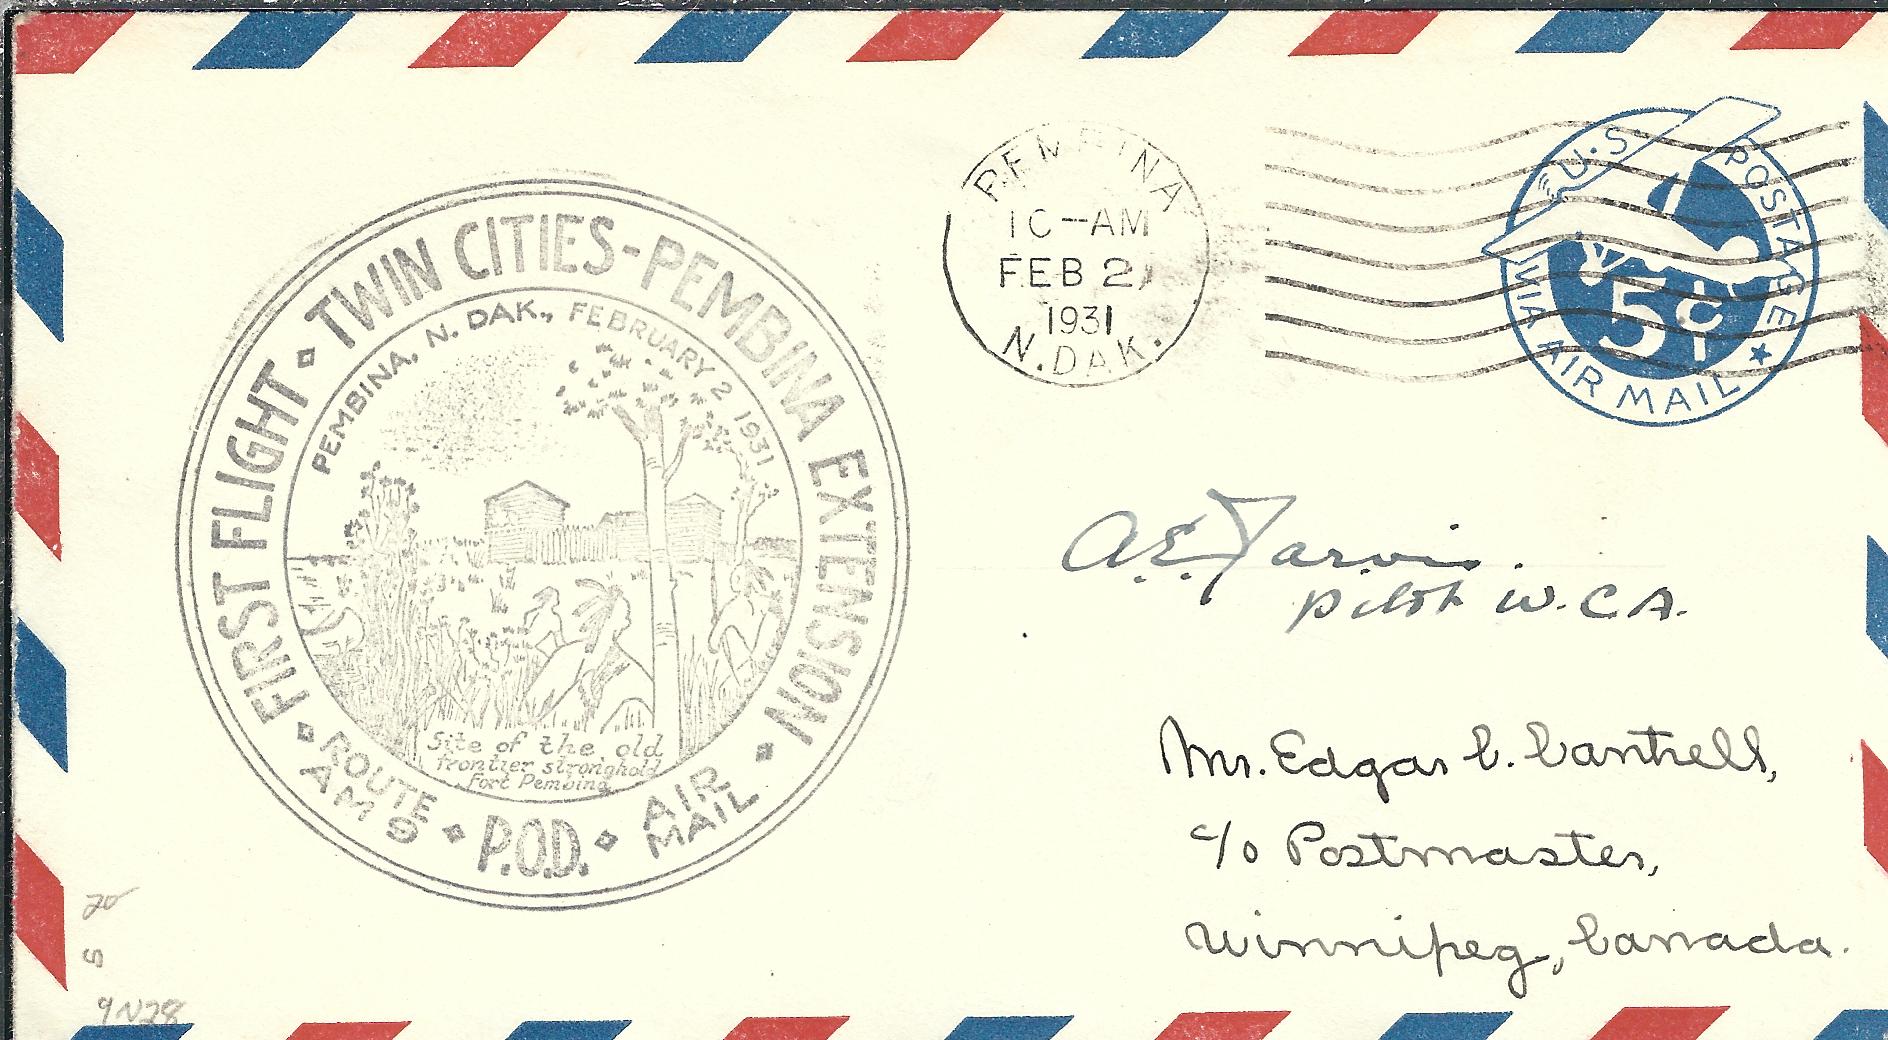 FIRST FLIGHT TWIN CITIES-PEMBINA EXTENSION
PEMBINA, N. DAK., FEBRUARY 2 1931
Site of the old
frontier stronghold
Fort Pembina
ROUTE
AM 9
P.O.D.
AIR
MAIL
PEMBINA
10-AM
FEB 2
1931
N.DAK.
U.S. POSTAGE
5¢
VIA AIR MAIL
A.E. Jarvis.
Pilot W.C.A.
Mr. Edgar C. Cantrell,
c/o Postmaster,
Winnipeg, Canada.
20
5
9N28